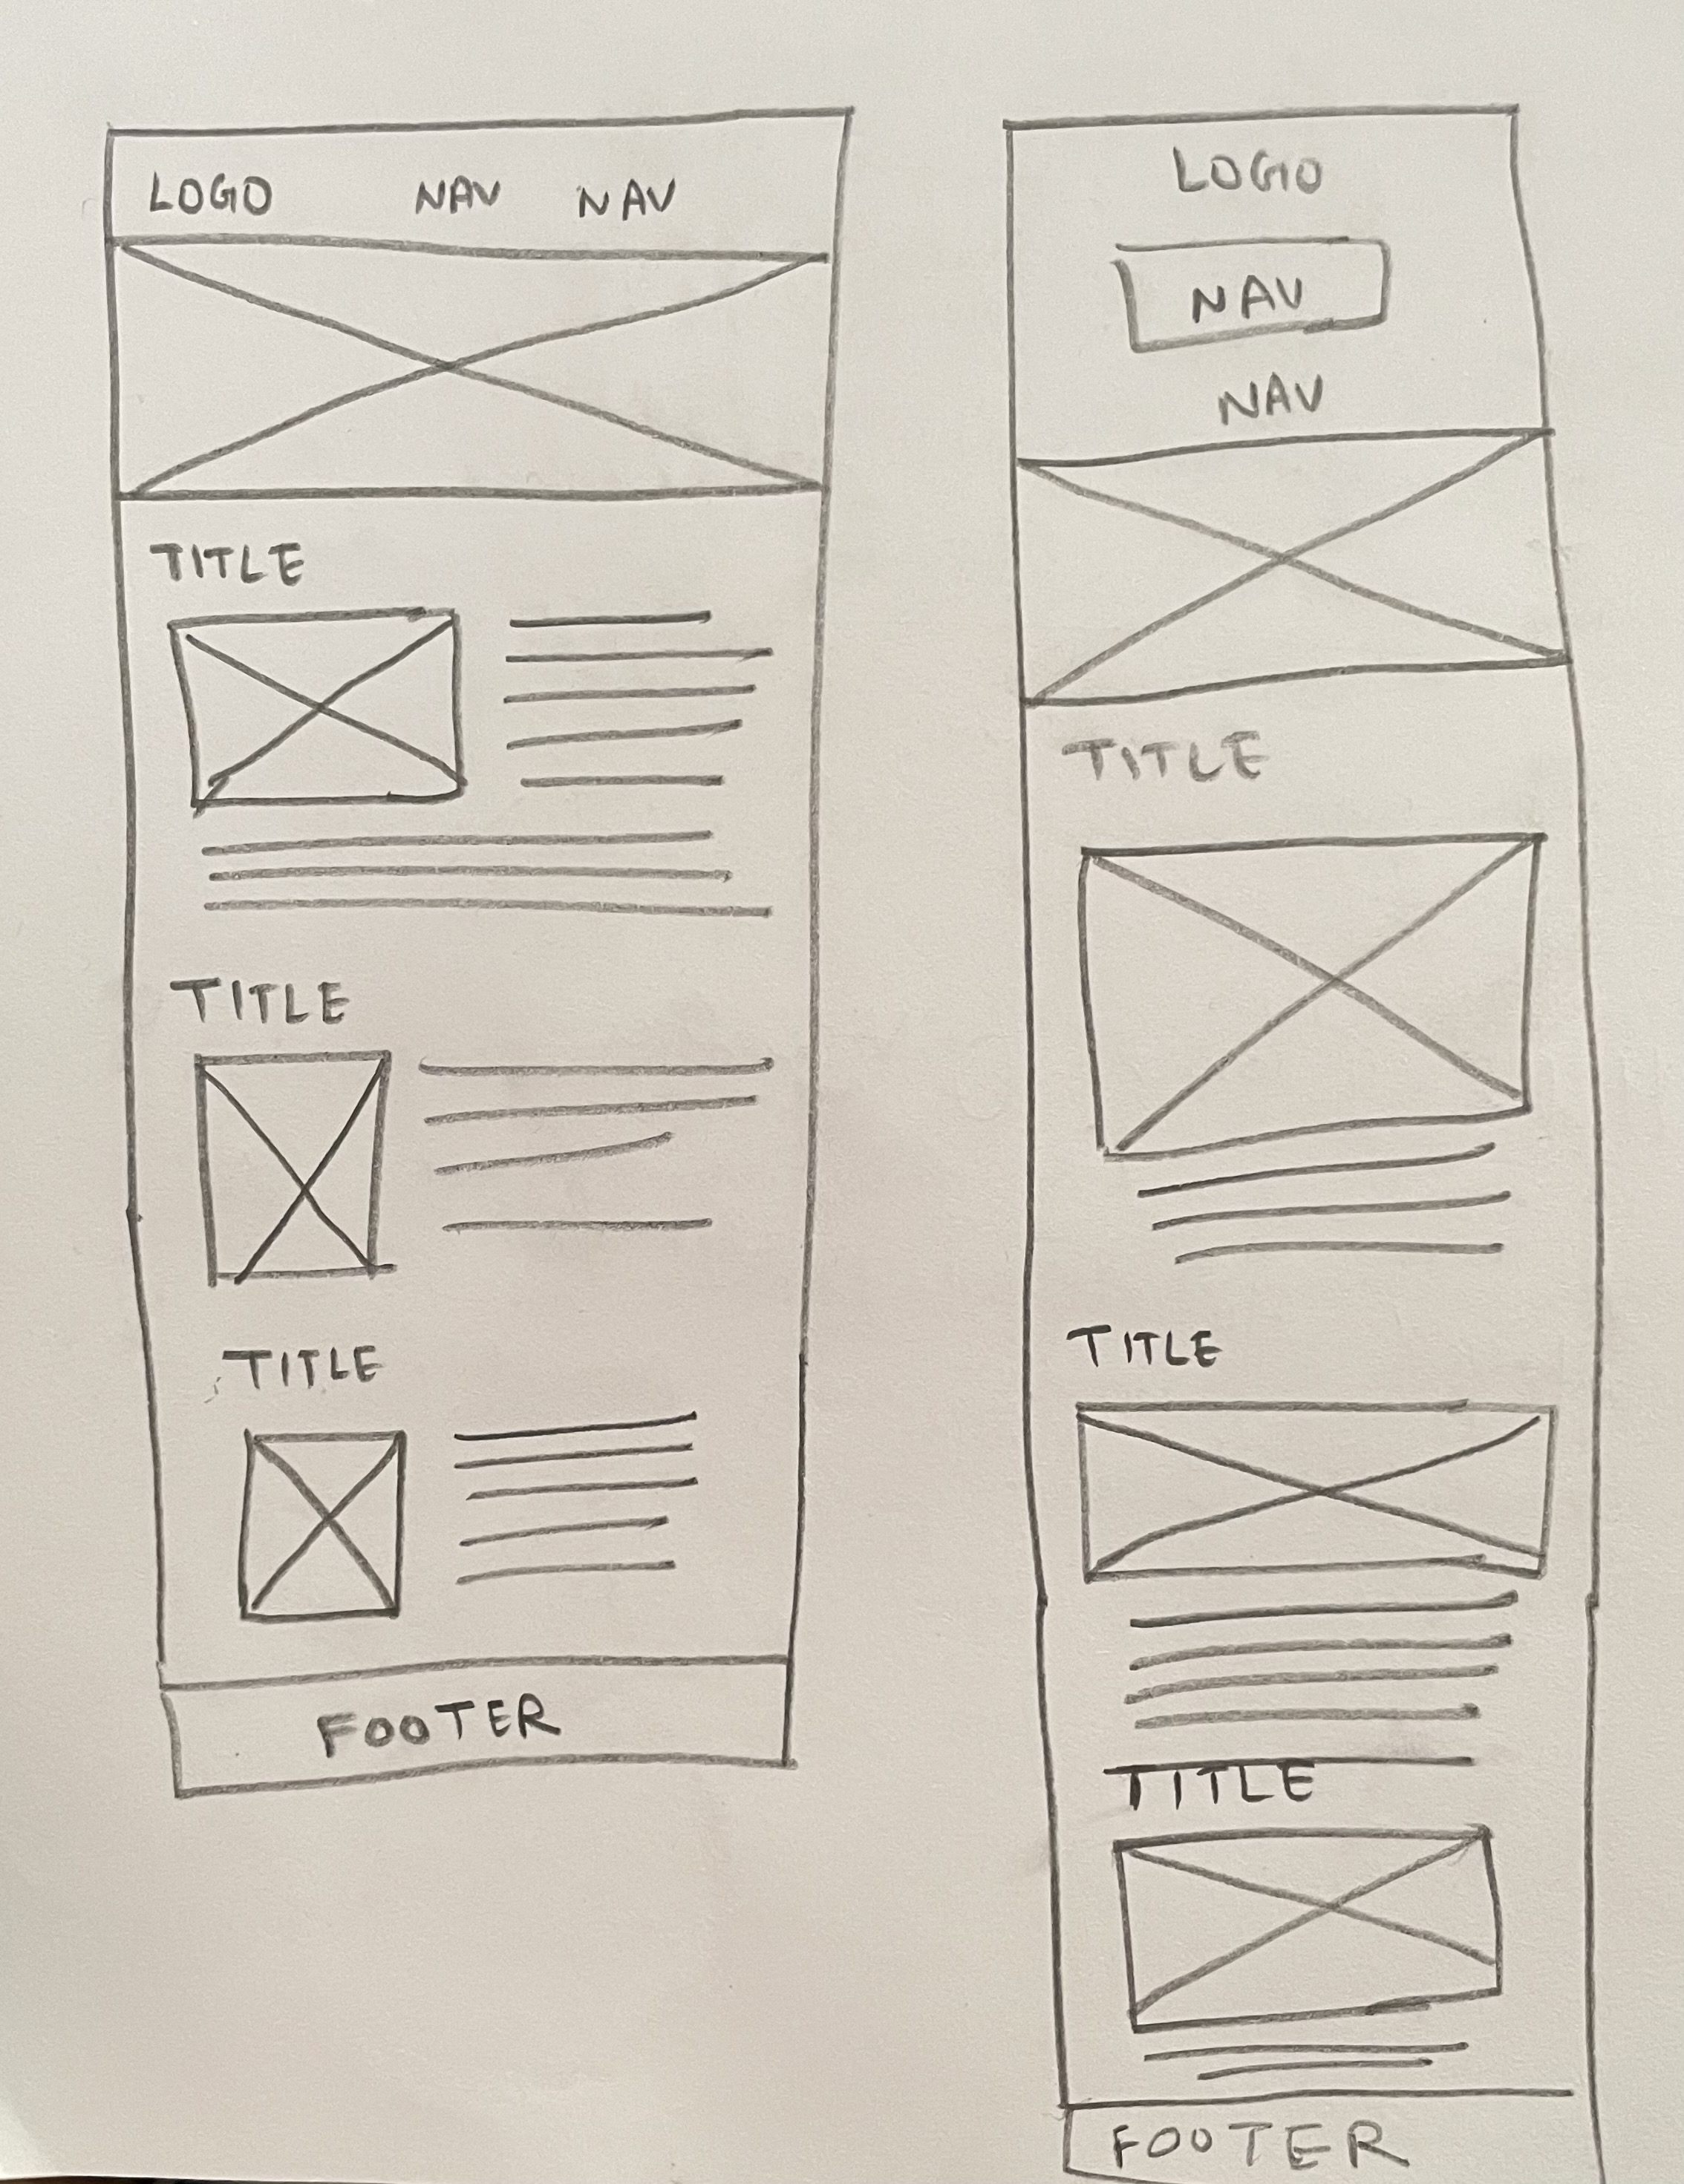 LOGO NAV NAV
TITLE
TITLE
TITLE
FOOTER
LOGO
NAV
NAV
TITLE
TITLE
TITLE
FOOTER